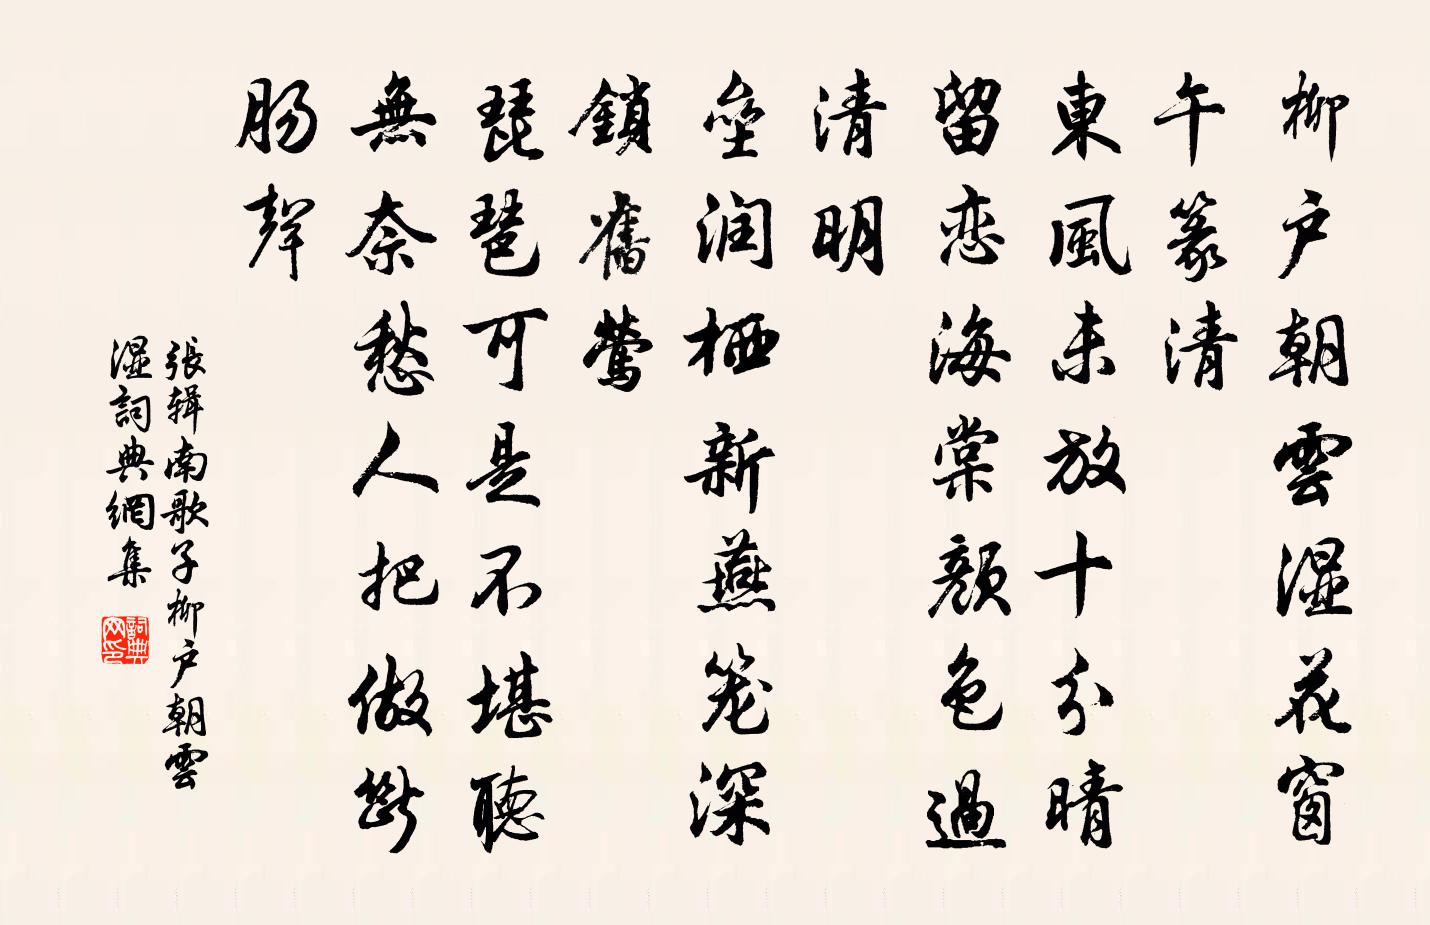 柳户朝雲湿花窗
午篆清
東風未放十分晴
留恋海棠顔色過
清明
壘润栖新燕笼深
鎖舊鶯
琵琶可是不堪聽
無奈愁人把做斷
肠聲
張辑南歌子柳户朝雲
湿詞典網集
詞典
网印